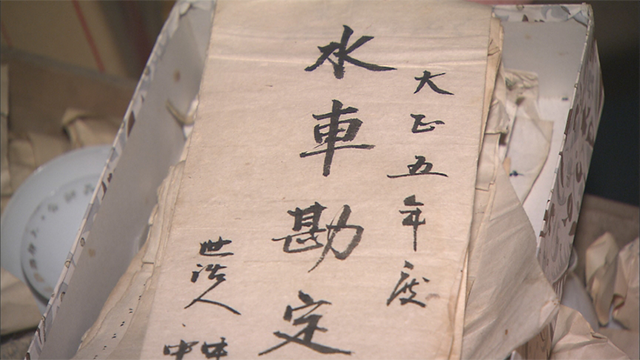 大正五年度
水車勘定
世話人